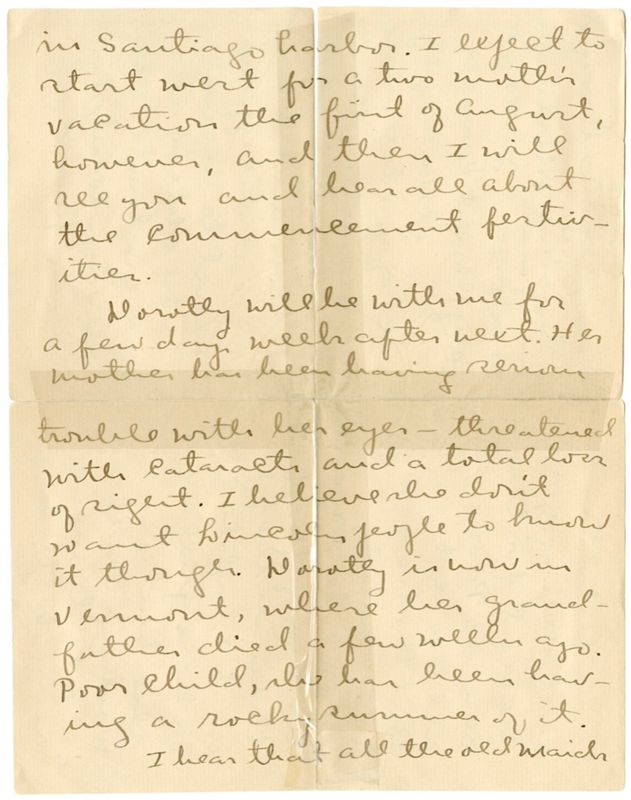 in Santiago harbor. I expect to
start west for a two month's
vacation the first of August,
however, and then I will
see you and hear all about
the Commencement festiv-
ities.
Dorothy will be with me for
a few days week after next. Her
mother has been having serious
trouble with her eyes - threatened
with cataracts and a total loss
of sight. I believe she don't
want Lincoln people to know
it though. Dorothy is now in
Vermont, where her grand-
father died a few weeks ago.
Poor child, she has been hav-
ing a rocky summer of it.
I hear that all the old maids